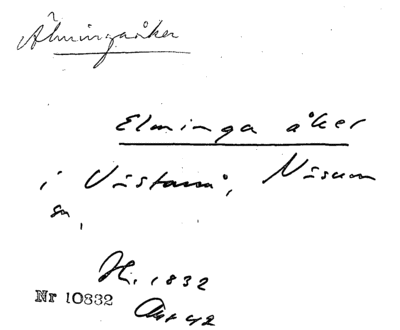 Älmingaåker
Elminga åker
i Västanå, Näsum
sn,
H. 1832
Akt 42
Nr 10832